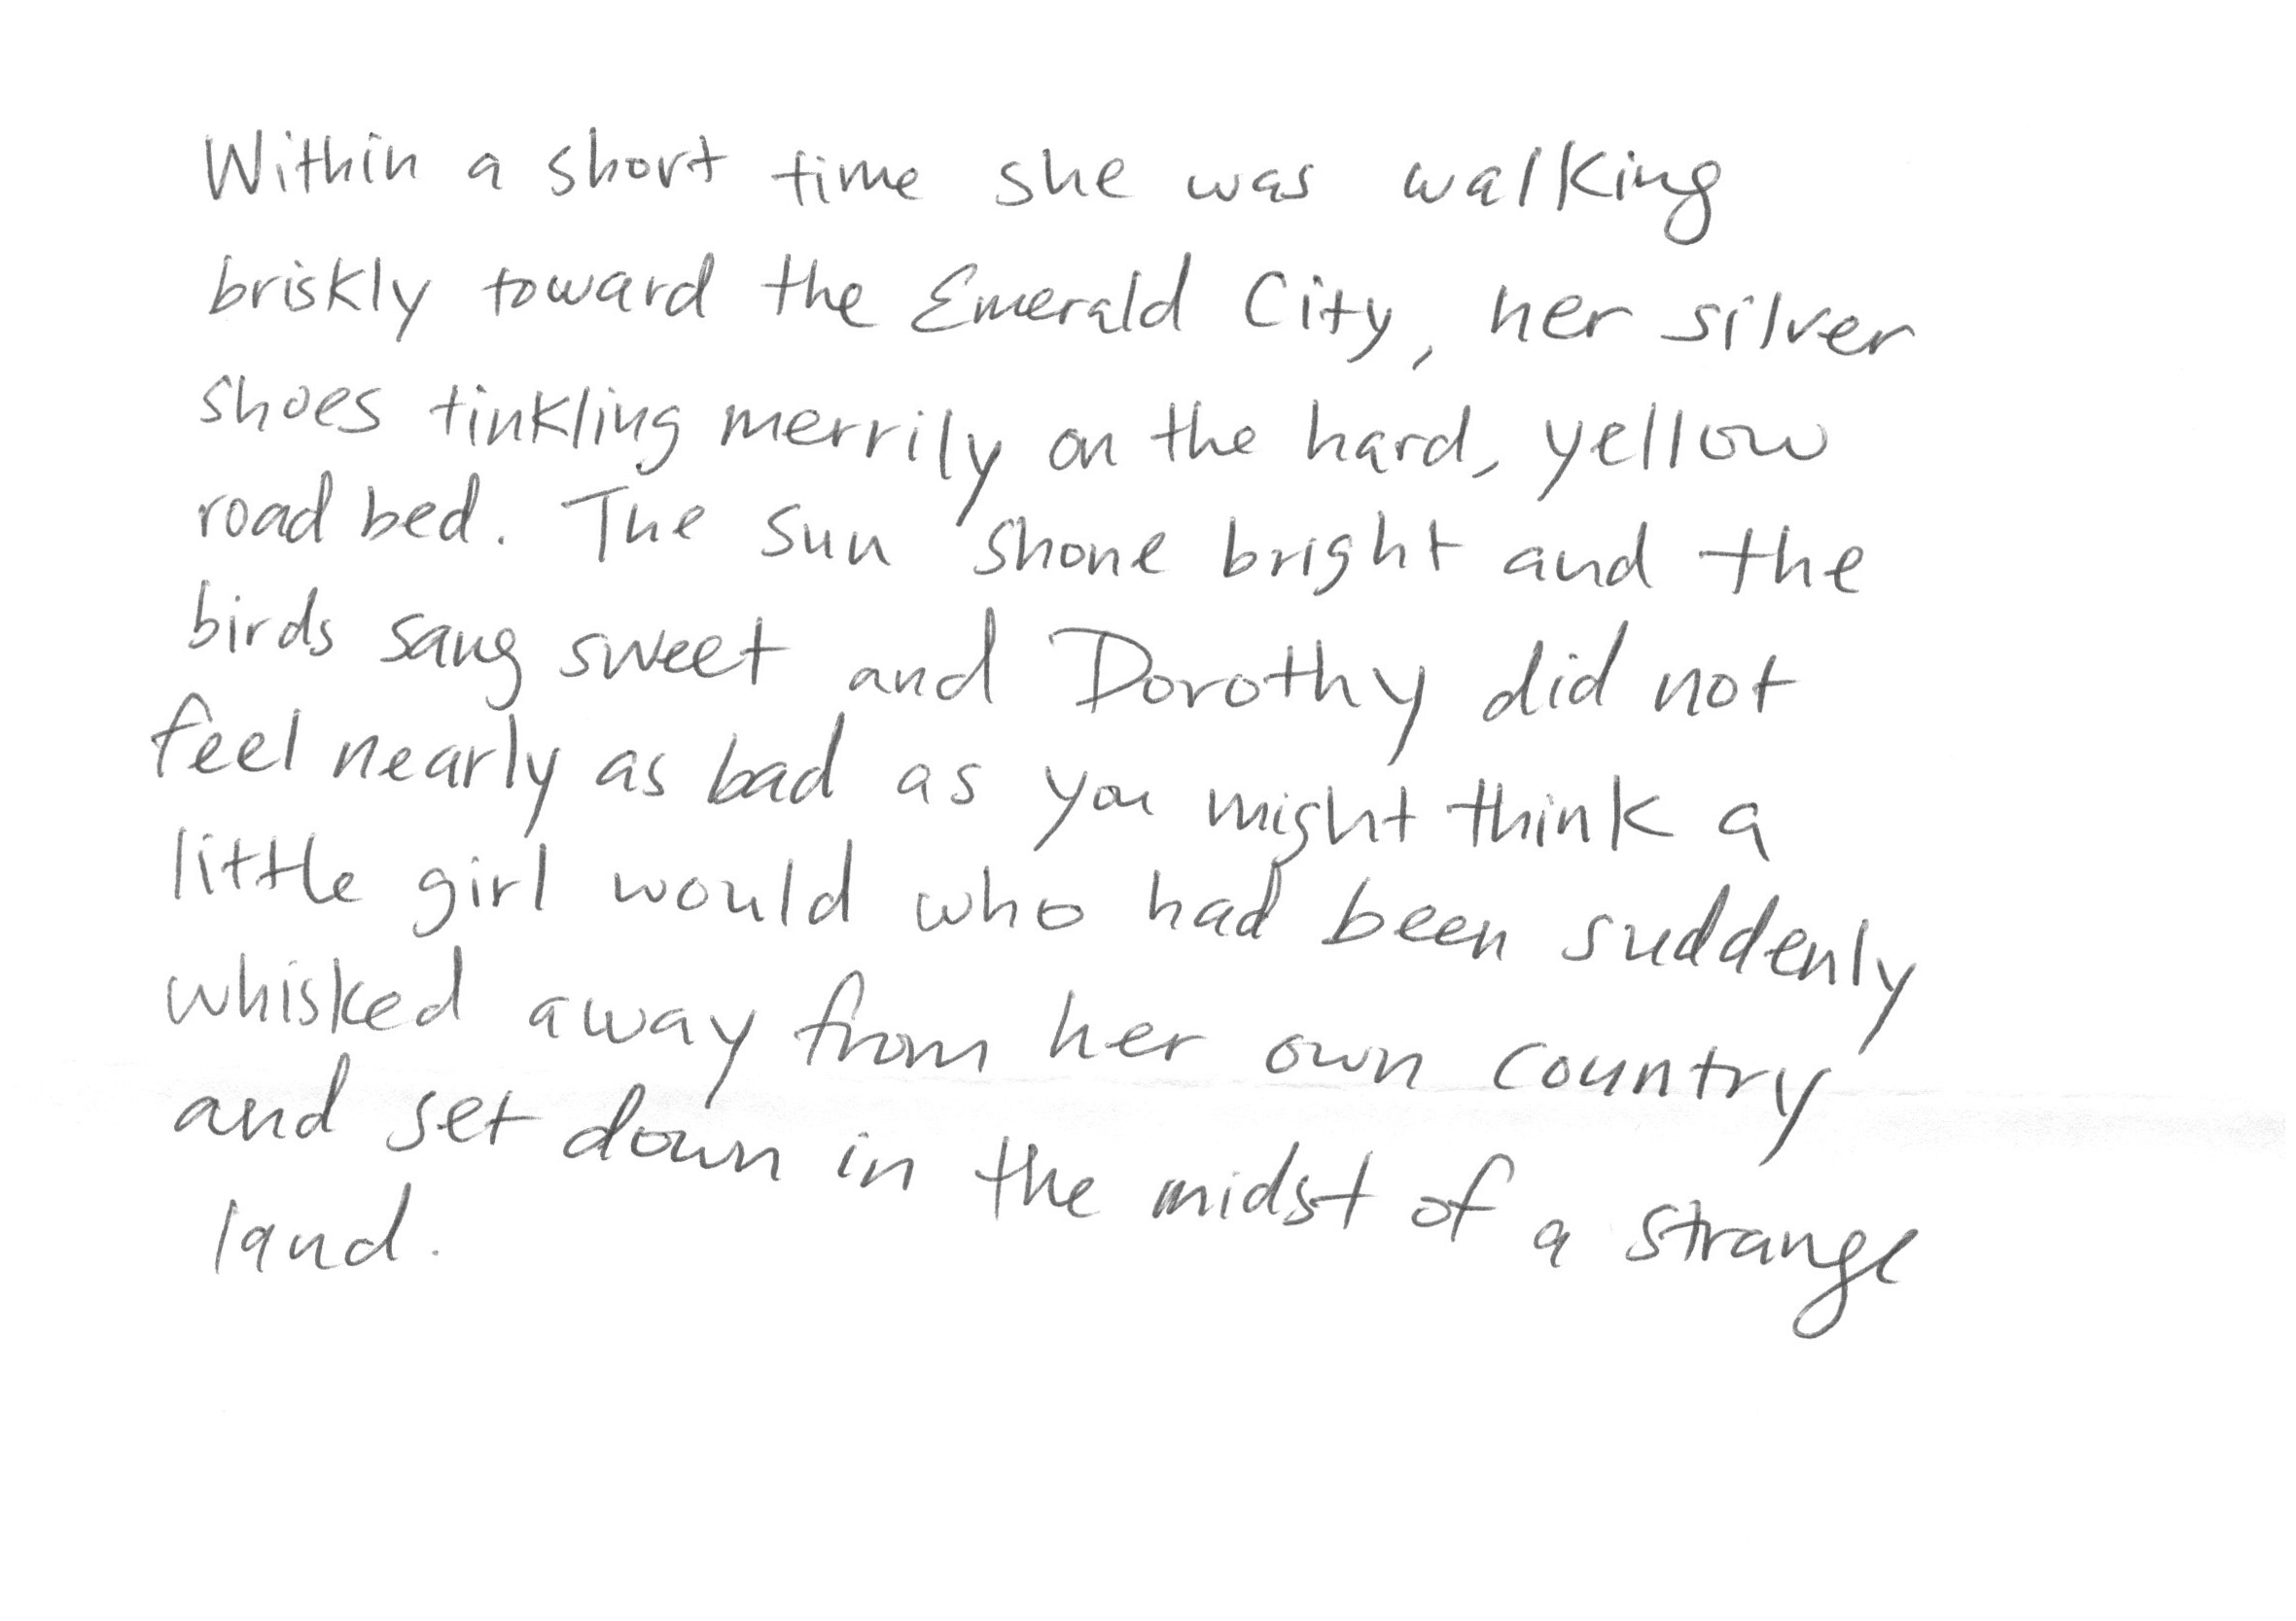 Within a short time she was walking
briskly toward the Emerald City, her silver
shoes tinkling merrily on the hard, yellow
road bed. The sun shone bright and the
birds sang sweet and Dorothy did not
feel nearly as bad as you might think a
little girl would who had been suddenly
whisked away from her own country
and set down in the midst of a strange
land.